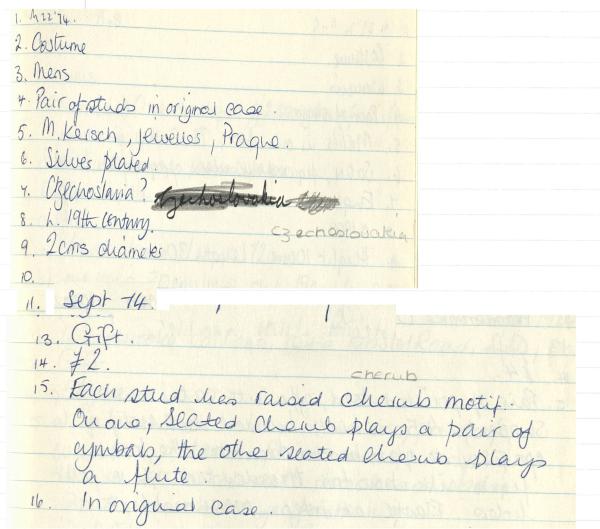 1. M22'74.
2. Costume
3. Mens
4. Pair of studs in original case.
5. M. Kersch, Jeweller, Prague.
6. Silver plated.
7. Czechoslavia? Czechoslovakia
8. L. 19th century.
Czechoslovakia
9. 2cms diameter
10.
11. Sept 74.
13. Gift.
14. £2.
cherub
15. Each stud has raised cherub motif.
On one, seated cherub plays a pair of
cymbals, the other seated cherub plays
a flute.
16. In original case.